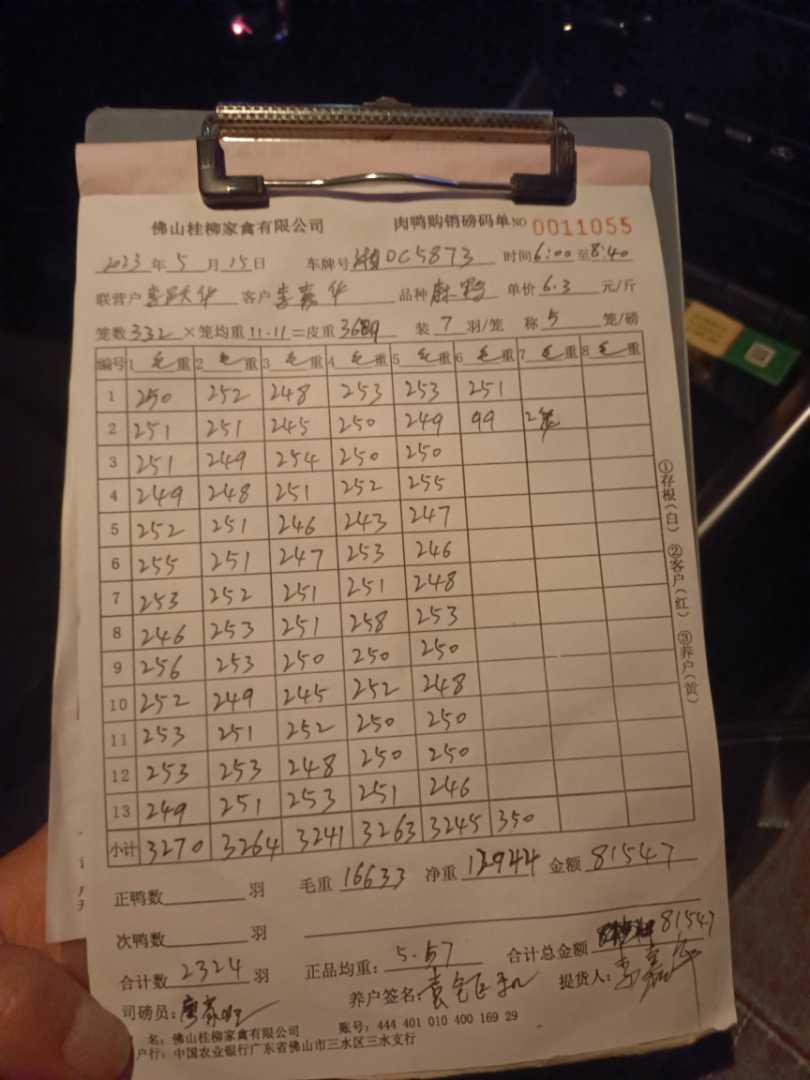 佛山桂柳家禽有限公司 肉鸭购销磅码单 NO 0011055
2023 年 5 月 15 日 车牌号 湘DC5873 时间 6:00 至 8:40
联营户 华 客户 李嘉华 品种 单价 6.3 元/斤
笼数 332 × 笼均重 11.11 = 皮重 3689 装 7 羽/笼 称 5 笼/磅
编号 1 毛重 2 毛重 3 毛重 4 毛重 5 毛重 6 毛重 7 毛重 8 毛重
1 250 252 248 253 253 251
2 251 251 245 250 249 99 2笼
3 251 249 254 250 250
4 249 248 251 252 255
5 252 251 246 243 247
6 255 251 247 253 246
7 253 252 251 251 248
8 246 253 251 258 253
9 256 253 250 250 250
10 252 249 245 252 248
11 253 251 252 250 250
12 253 253 248 250 250
13 249 251 253 251 246
小计 3270 3264 3241 3263 3245 350
正鸭数 羽 毛重 16633 净重 12944 金额 81547
次鸭数 羽
合计数 2324 羽 正品均重: 5.57 合计总金额 81547
司磅员: 养户签名: 提货人: 李嘉华
名: 佛山桂柳家禽有限公司 账号: 444 401 010 400 169 29
户行: 中国农业银行广东省佛山市三水区三水支行
①存根(白) ②客户(红) ③养户(黄)